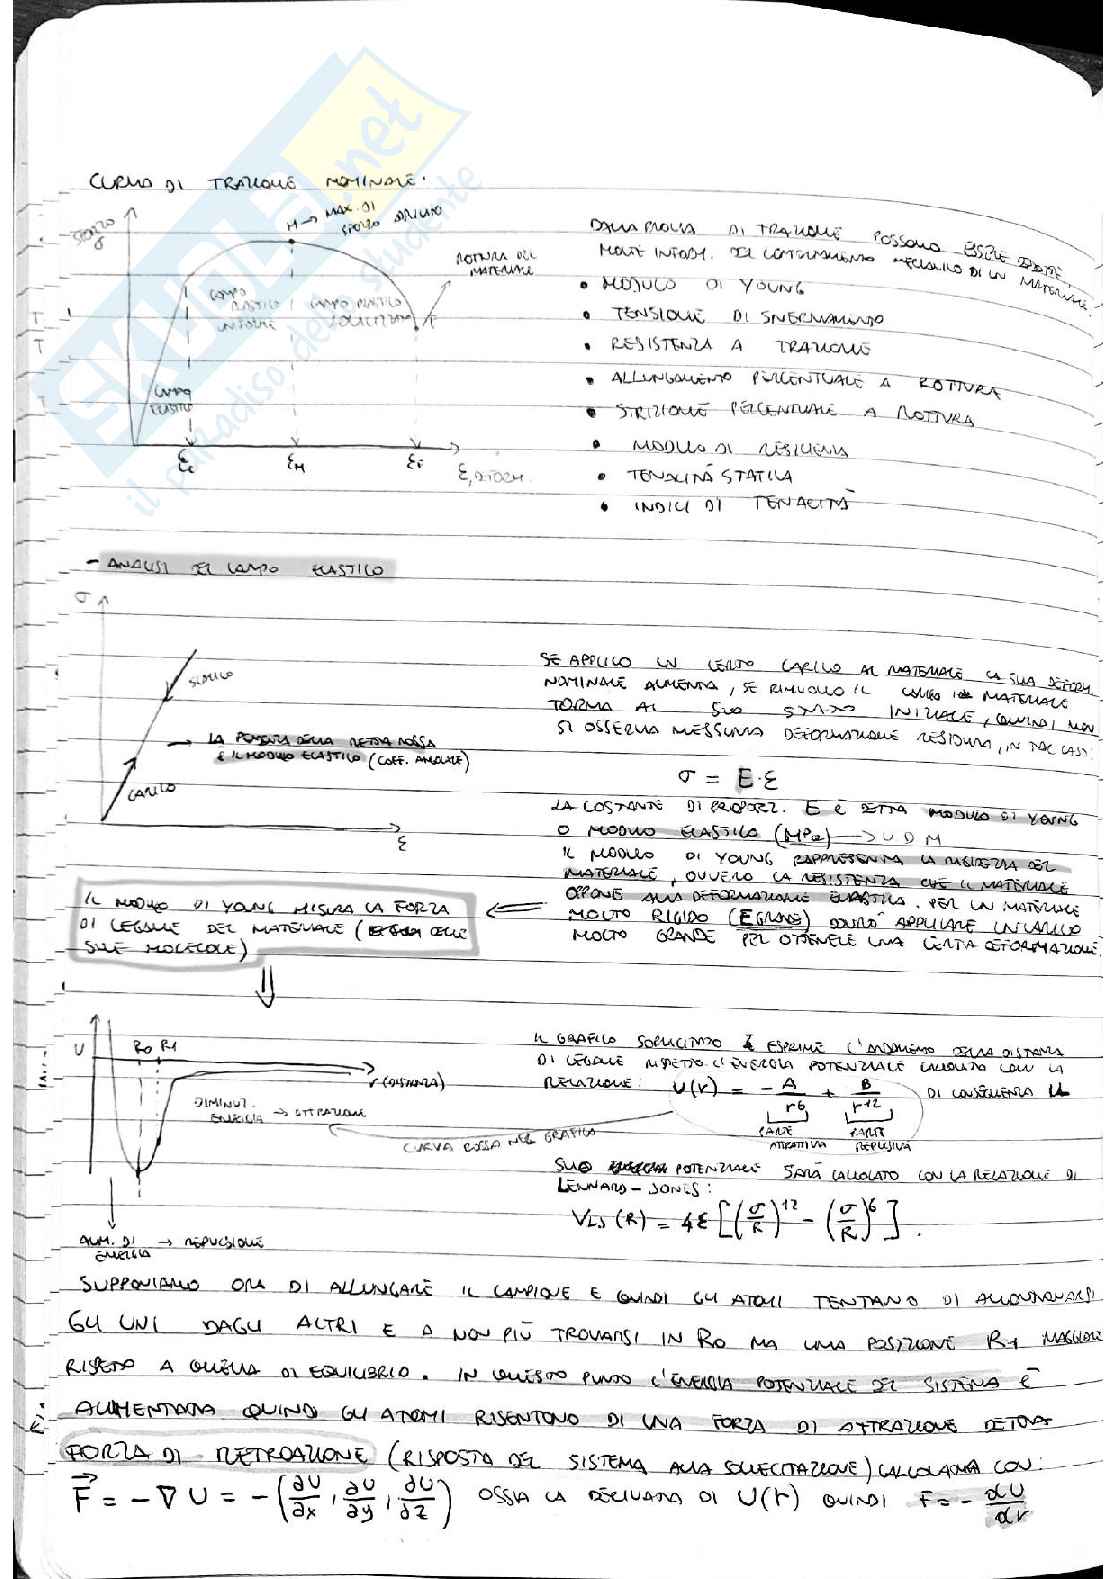 SKUOLA.net
il paradiso dello studente
CURVA DI TRAZIONE NOMINALE.
SFORZO
σ
M → MAX. DI
SFORZO
ROTTURA DEL
MATERIALE
CAMPO
PLASTICO
UNIFORME
CAMPO PLASTICO
LOCALIZZATO
F
CAMPO
ELASTICO
εE
εM
εF
ε, DEFORM.
DALLA PROVA DI TRAZIONE POSSONO ESSERE
MOLTE INFORM. DEL COMPORTAMENTO MECCANICO DI UN MATERIALE
• MODULO DI YOUNG
• TENSIONE DI SNERVAMENTO
• RESISTENZA A TRAZIONE
• ALLUNGAMENTO PERCENTUALE A ROTTURA
• STRIZIONE PERCENTUALE A ROTTURA
• MODULO DI RESILIENZA
• TENACITÀ STATICA
• INDICI DI TENACITÀ
- ANALISI DEL CAMPO ELASTICO
σ
SCARICO
→ LA PENDENZA DELLA RETTA ROSSA
È IL MODULO ELASTICO (COEFF. ANGOLARE)
CARICO
ε
SE APPLICO UN CERTO CARICO AL MATERIALE LA SUA DEFORM.
NOMINALE AUMENTA, SE RIMUOVO IL CARICO MATERIALE
TORNA AL SUO STATO INIZIALE, QUINDI NON
SI OSSERVA NESSUNA DEFORMAZIONE RESIDUA, IN TAL CASO:
σ = E·ε
LA COSTANTE DI PROPORZ. E È DETTA MODULO DI YOUNG
O MODULO ELASTICO (MPa) → U D M
IL MODULO DI YOUNG RAPPRESENTA LA RIGIDEZZA DEL
MATERIALE, OVVERO LA RESISTENZA CHE IL MATERIALE
OPPONE ALLA DEFORMAZIONE ELASTICA. PER UN MATERIALE
MOLTO RIGIDO (E GRANDE) DOVRÒ APPLICARE UN CARICO
MOLTO GRANDE PER OTTENERE UNA CERTA DEFORMAZIONE.
IL MODULO DI YOUNG MISURA LA FORZA
DI LEGAME DEL MATERIALE ( DELLE
SUE MOLECOLE)
U
R0 R1
r (DISTANZA)
DIMINUZ.
ENERGIA → ATTRAZIONE
CURVA ROSSA NEL GRAFICO
AUM. DI
ENERGIA → REPULSIONE
IL GRAFICO SOPRACITATO ESPRIME L'ANDAMENTO DELLA DISTANZA
DI LEGAME RISPETTO L'ENERGIA POTENZIALE CALCOLATO CON LA
RELAZIONE: U(r) = - A/r6 + B/r12 DI CONSEGUENZA LA
PARTE ATTRATTIVA
PARTE REPULSIVA
SUA POTENZIALE SARÀ CALCOLATO CON LA RELAZIONE DI
LENNARD-JONES:
VLJ (R) = 4ε [(σ/R)^12 - (σ/R)^6].
SUPPONIAMO ORA DI ALLUNGARE IL CAMPIONE E QUINDI GLI ATOMI TENTANO DI ALLONTANARSI
GLI UNI DAGLI ALTRI E A NON PIÙ TROVARSI IN R0 MA UNA POSIZIONE R1 MAGGIORE
RISPETTO A QUELLA DI EQUILIBRIO. IN QUESTO PUNTO L'ENERGIA POTENZIALE DEL SISTEMA È
AUMENTATA QUINDI GLI ATOMI RISENTONO DI UNA FORZA DI ATTRAZIONE DETTA
FORZA DI RETROAZIONE (RISPOSTA DEL SISTEMA ALLA SOLLECITAZIONE) CALCOLATA CON:
F⃗ = - ∇U = -(∂U/∂x, ∂U/∂y, ∂U/∂z) OSSIA LA DERIVATA DI U(r) QUINDI F = - dU/dr